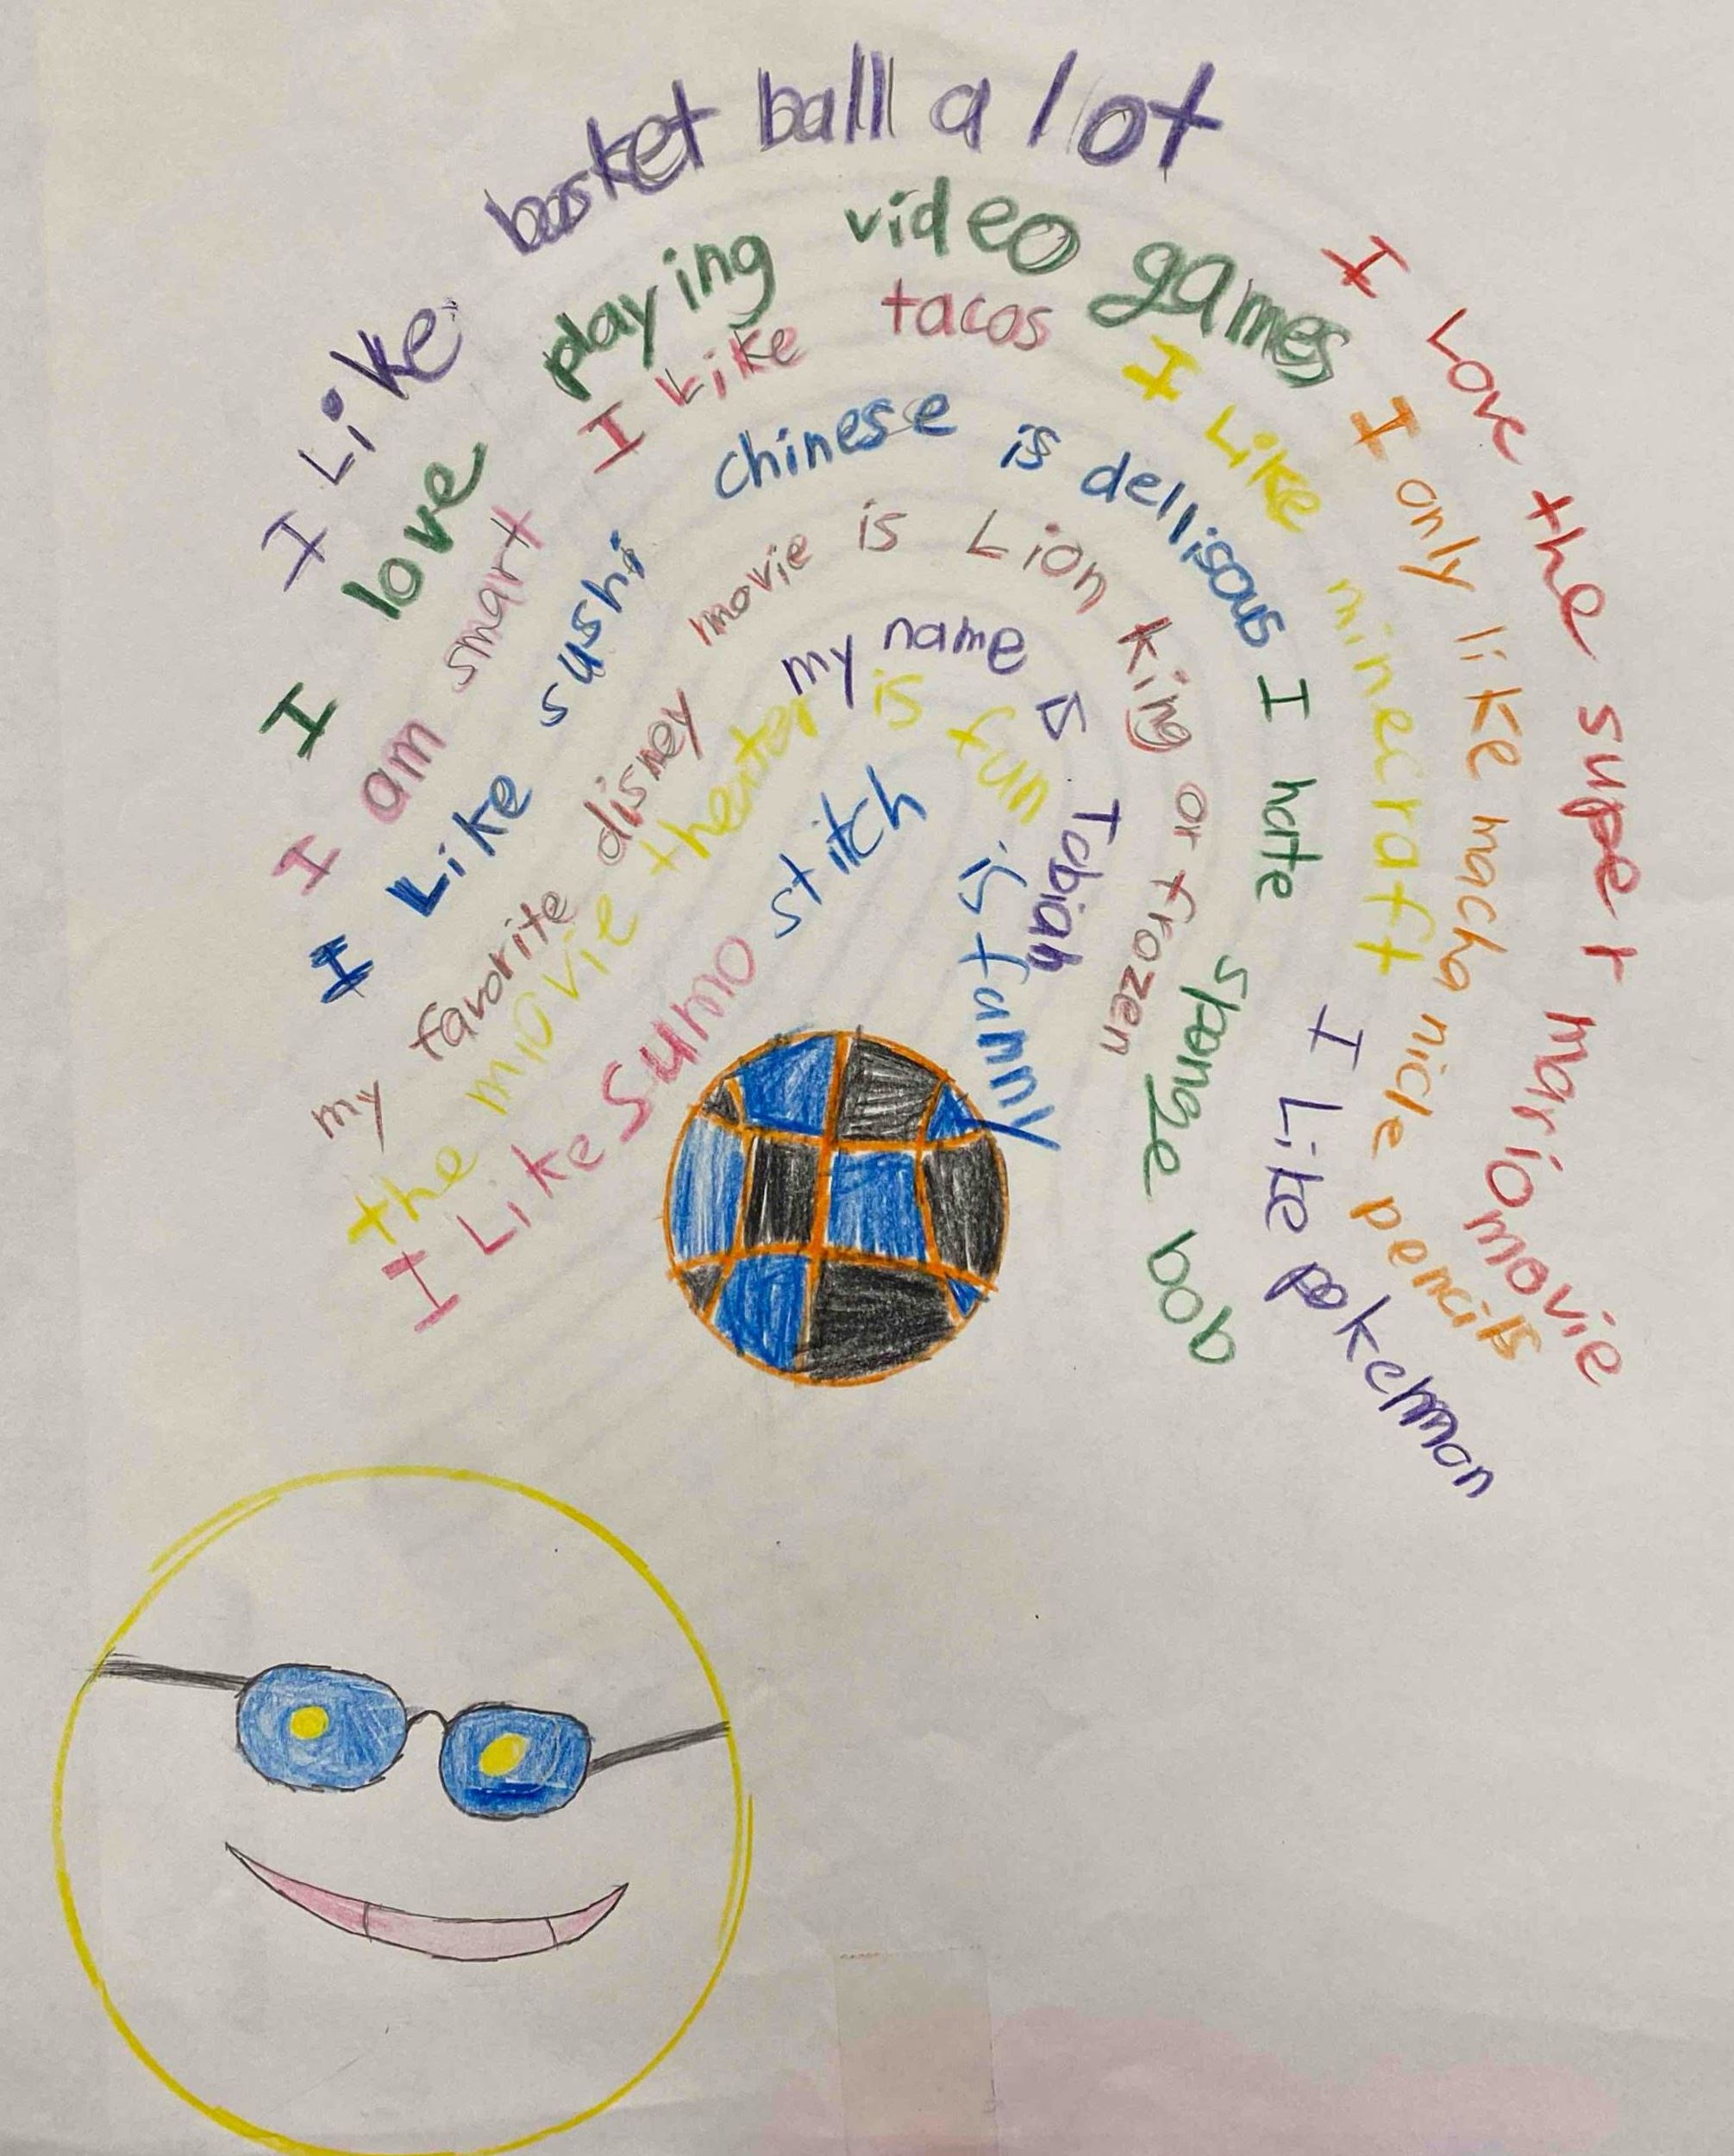 I Like basket ball a lot
I Love the super mario movie
I love playing video games
I only like macha nicle pencils
I am smart
I Like tacos
I Like minecraft
I Like pokemon
I Like sushi
chinese is dellisous
I hate sponge bob
my favorite disney movie is Lion King or frozen
my name is Tobiah
the movie theater is fun
I Like sumo
stitch is funny